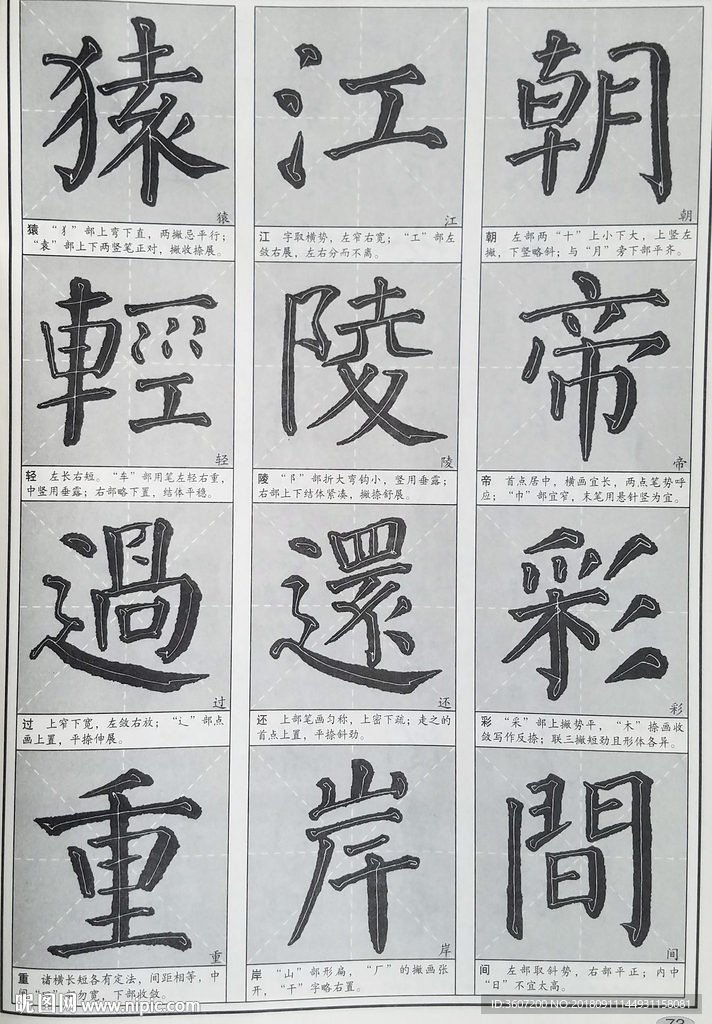 猿 江 朝
猿 江 朝
猿 “犭”部上弯下直，两撇忌平行；
“袁”部上下两竖笔正对，撇收捺展。
江 字取横势，左窄右宽；“工”部左
敛右展，左右分而不离。
朝 左部两“十”上小下大，上竖左
撇，下竖略斜；与“月”旁下部平齐。
輕 陵 帝
轻 陵 帝
轻 左长右短。“车”部用笔左轻右重，
中竖用垂露；右部略下置，结体平稳。
陵 “阝”部折大弯钩小，竖用垂露；
右部上下结体紧凑，撇捺舒展。
帝 首点居中，横画宜长，两点笔势呼
应；“巾”部宜窄，末笔用悬针竖为宜。
過 還 彩
过 还 彩
过 上窄下宽，左敛右放；“辶”部点
画上置，平捺伸展。
还 上部笔画匀称，上密下疏；走之的
首点上置，平捺斜劲。
彩 “采”部上撇势平，“木”捺画收
敛写作反捺；联三撇短劲且形体各异。
重 岸 間
重 岸 间
重 诸横长短各有定法，间距相等，中
勿宽，下部收敛。
岸 “山”部形扁，“厂”的撇画张
开，“干”字略右置。
间 左部取斜势，右部平正；内中
“日”不宜太高。
昵图网 www.nipic.com
ID:3607200 NO:20180911144931158081
73